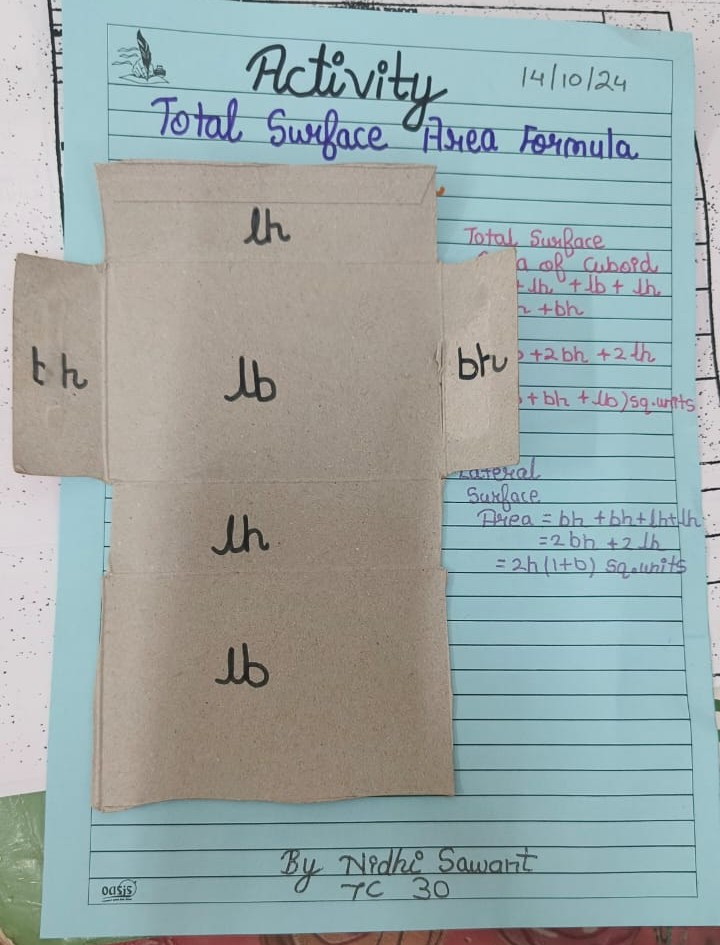 Activity
14/10/24
Total Surface Area Formula
lh
bh
lb
bh
lh
lb
Total Surface
a of Cuboid
+lh +lb + lh
+bh
+2bh +2lh
+ bh + lb) sq.units
Lateral
Surface
Area = bh +bh+lh+lh
=2bh +2lh
= 2h(l+b) sq.units
By Nidhi Sawant
7C 30
oasis